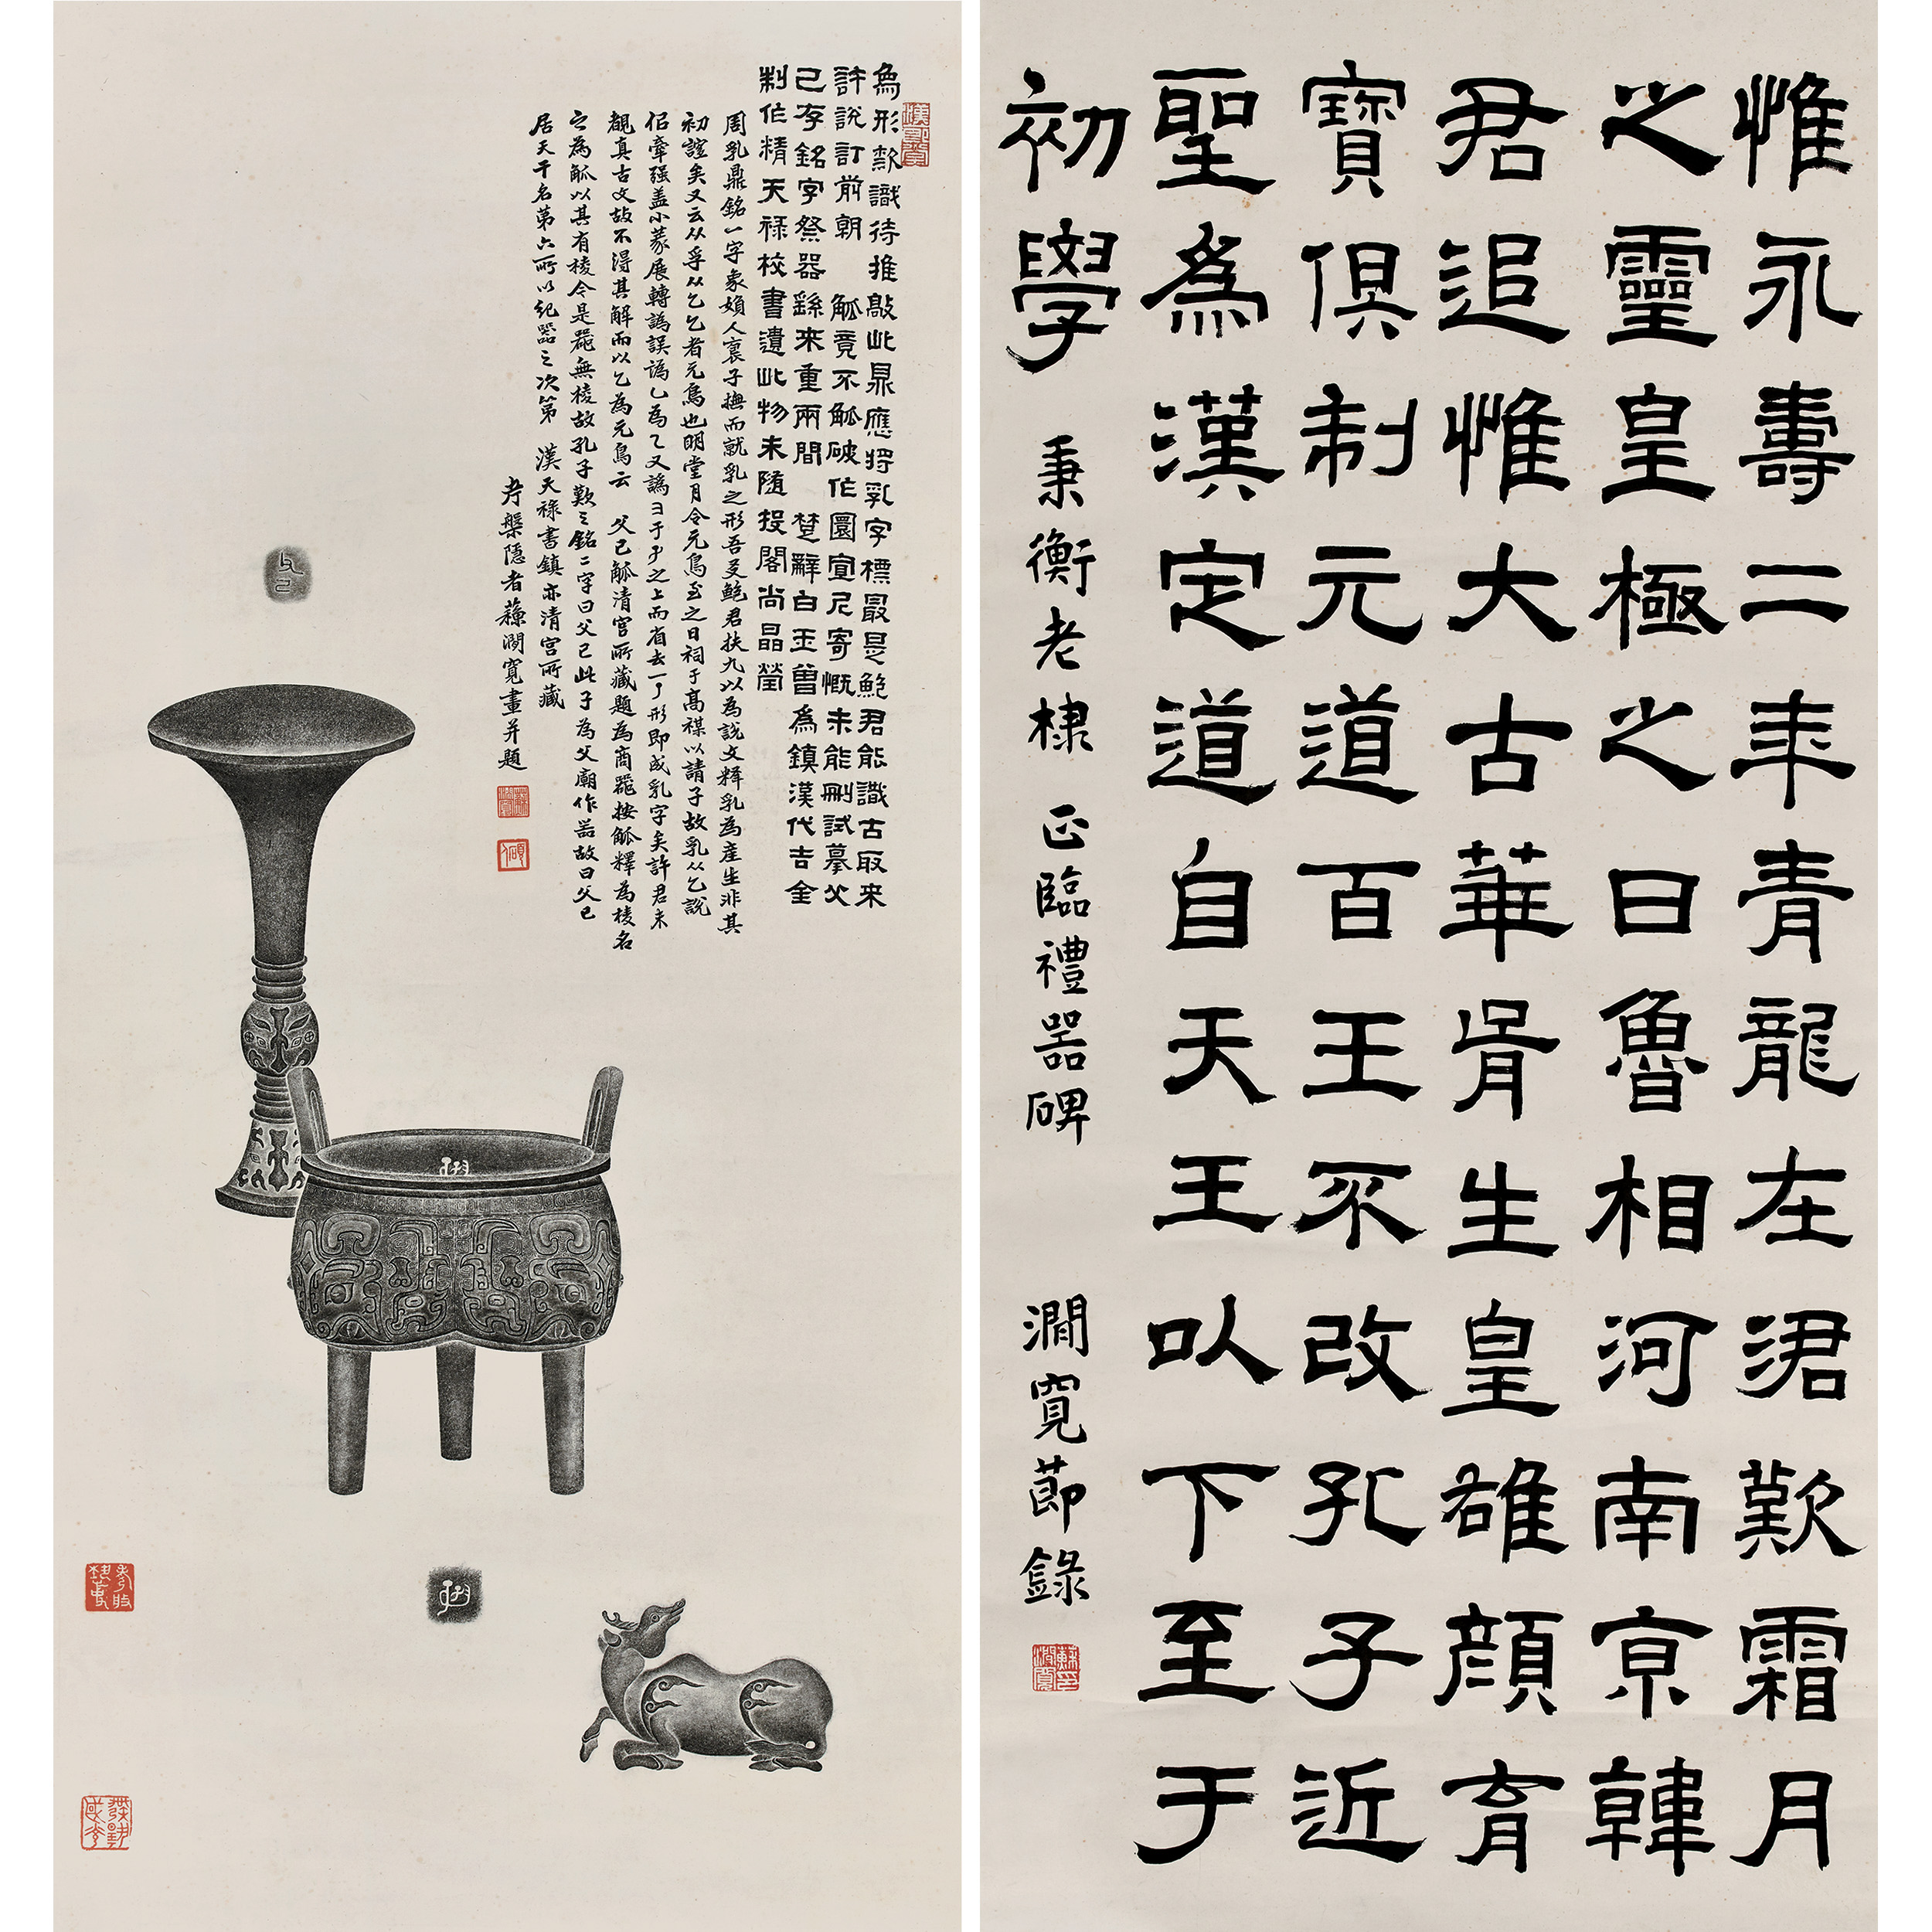 惟永壽二年青龍在涒歎霜月
之靈皇極之日魯相河南京韓
君追惟大古華胥生皇雄顏育
寶俱制元道百王不改孔子近
聖為漢定道自天王以下至于
初學 秉衡老棣 正臨禮器碑 澗寬節錄
為形欵識待推敲此鼎應將乳字標最是鮑君能識古取来
許說訂前朝 觚竟不觚破作圜宣尼寄慨未能刪試摹父
己存銘字祭器繇来重兩間 楚辭白玉曾為鎮漢代吉金
制作精天禄校書遺此物未随投閣尚晶瑩
周乳鼎銘一字象媍人褱子撫而就乳之形吾友鮑君扶九以為說文釋乳為產生非其
初誼矣又云从孚从乞乞者元鳥也明堂月令元鳥至之日祠于高禖以請子故乳从乞說
佀牽强盖小篆展轉譌誤譌乚為乙又譌彐于子之上而省去一了形即成乳字矣許君未
覩真古文故不得其解而以乞為元鳥云 父己觚清宮所藏題為商器按觚釋為棱名
之為觚以其有棱今是器無棱故孔子歎之銘二字曰父己此子為父廟作器故曰父己
居天干名第六所以紀器之次第 漢天禄書鎮亦清宮所藏
考槃隱者蘇澗寬畫并題
父己